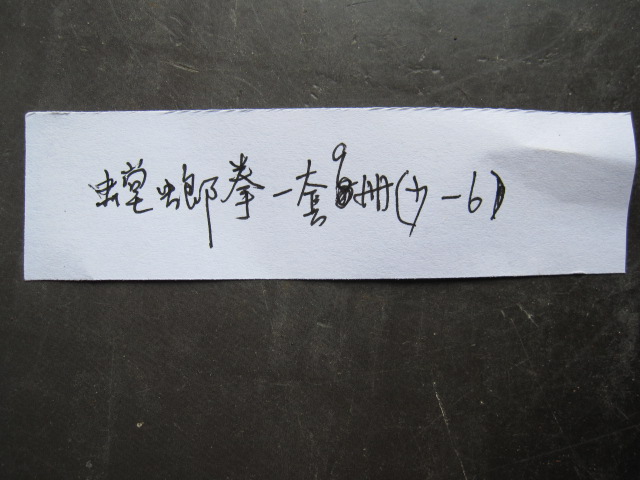 螳螂拳一套9册(少一6)